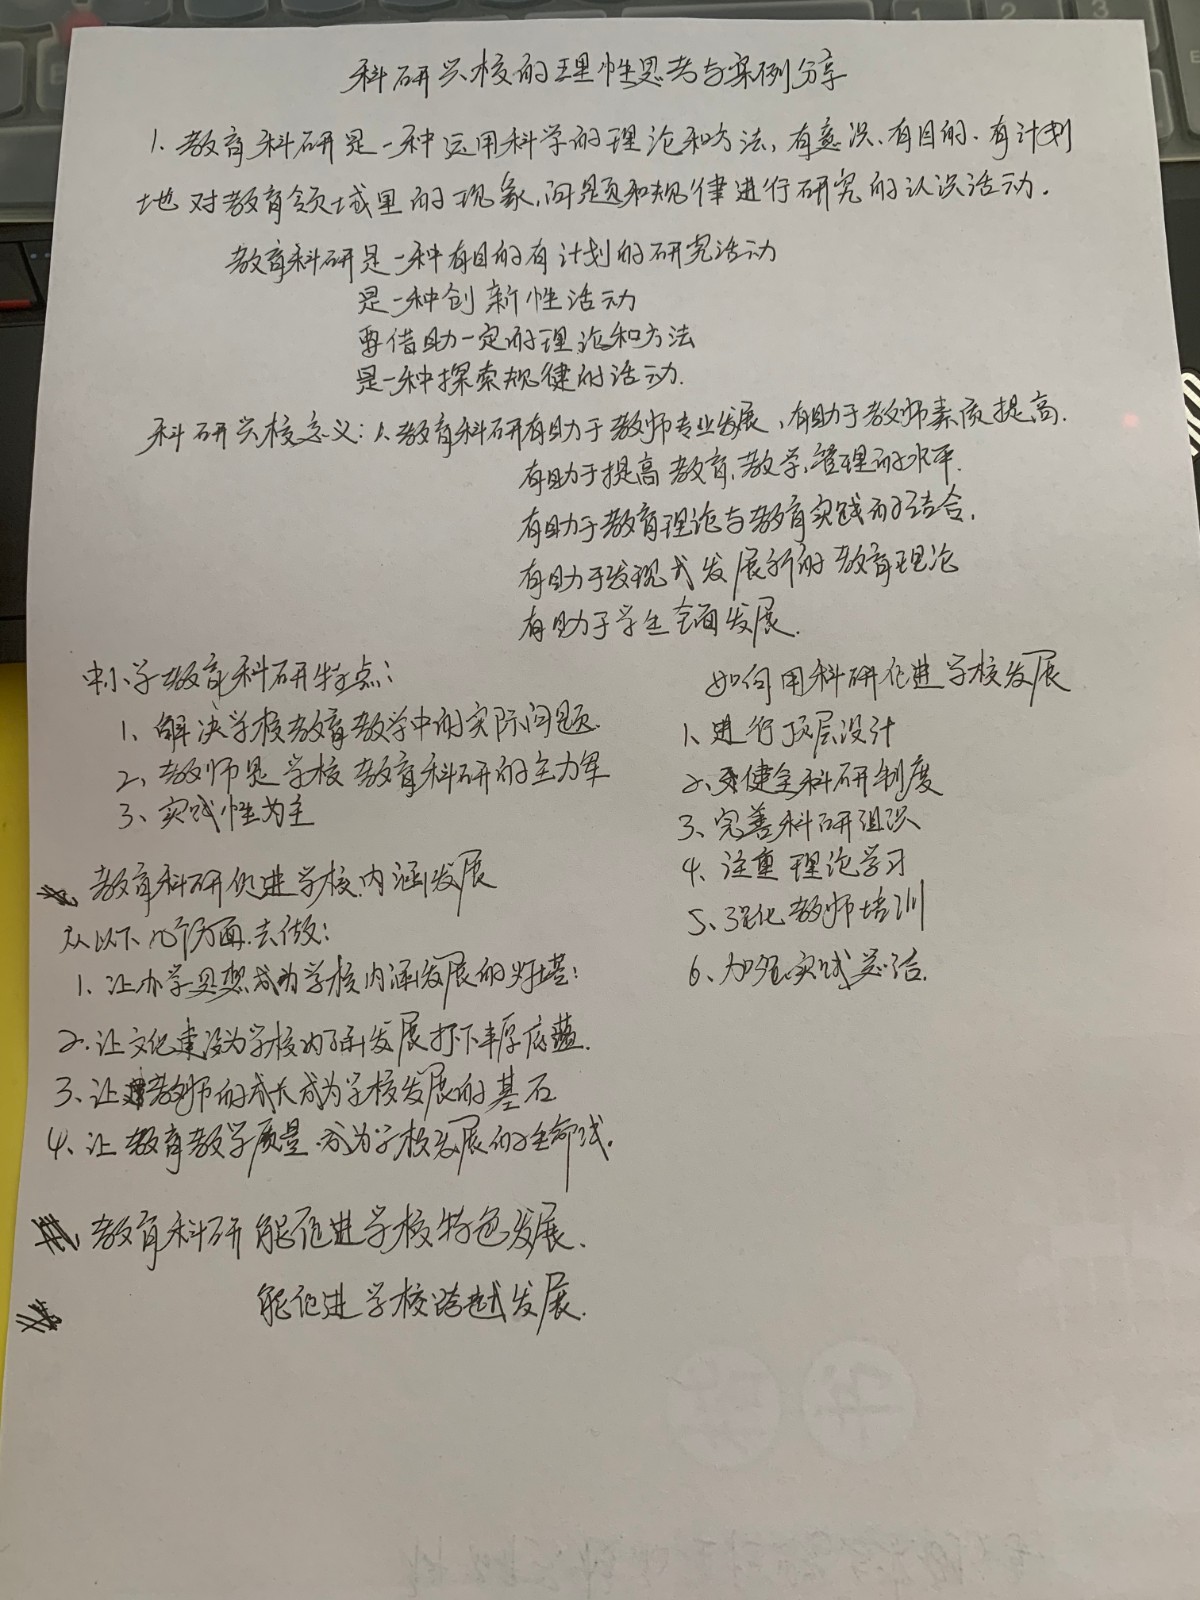 科研兴校的理性思考与案例分享
1. 教育科研是一种运用科学的理论和方法，有意识、有目的、有计划
地对教育领域里的现象、问题和规律进行研究的认识活动.
教育科研是一种有目的有计划的研究活动
是一种创新性活动
要借助一定的理论和方法
是一种探索规律的活动.
科研兴校意义：1.教育科研有助于教师专业发展、有助于教师素质提高.
有助于提高教育、教学、管理的水平.
有助于教育理论与教育实践的结合.
有助于发现或发展新的教育理论
有助于学生全面发展.
中小学教育科研特点：
1. 解决学校教育教学中的实际问题
2、教师是学校教育科研的主力军
3、实践性为主
教育科研促进学校内涵发展
从以下几个方面去做：
1、让办学思想成为学校内涵发展的灯塔；
2.让文化建设为学校内涵发展打下丰厚底蕴.
3、让教师的成长成为学校发展的基石
4、让教育教学质量成为学校发展的生命线.
教育科研能促进学校特色发展、
能促进学校跨越发展.
如何用科研促进学校发展
1、进行顶层设计
2、健全科研制度
3、完善科研组织
4、注重理论学习
5、强化教师培训
6、加强实践总结.